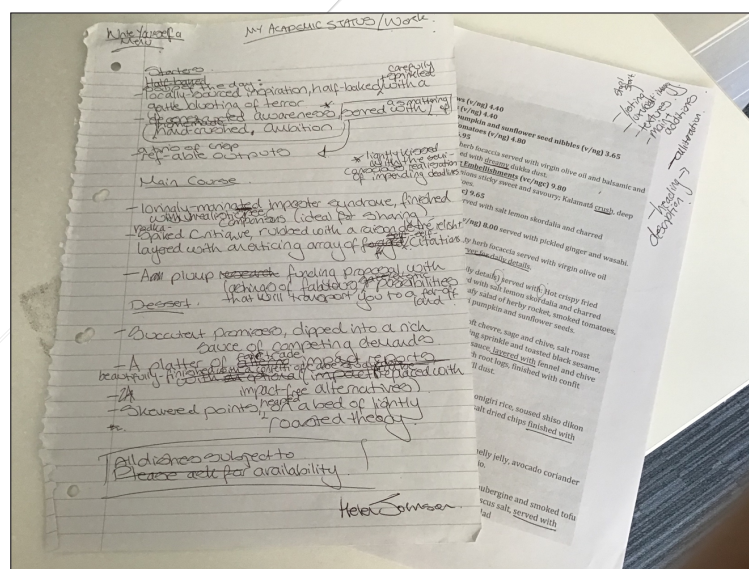 Write Yourself a
Menu
MY ACADEMIC STATUS/Work.
Starters
Half-baked
of the day:
carefully
sprinkled
- locally-sourced inspiration, half-baked, with a
blueting of terror
a smattering
awareness, served with
hand-crushed, ambition
a trio of crisp
ref-able outputs
* lightly kissed
with the semi-
conscious realisation
of impending deadlines
Main Course
- lovingly-marinated Imposter syndrome, finished
with unrealistic
comparisons (ideal for sharing)
vodka-
- soaked critique, rubbed with a raison de relish
layered with an enticing array of self-
citations
- A plump research funding proposal with
fabulous possibilities
that will transport you to a far-off
land
Dessert
- Succulent promises, dipped into a rich
sauce of competing demands
- A platter of impact reports
beautifully-finished
with optional (impact prepared with
impact-free alternatives)
- Skewered points, on a bed of lightly
roasted theory.
All dishes subject to
Please ask for availability
Helen Johnson
- texting
- textures
- heading →
description
ws (v/ng) 4.40
(v/ng) 4.40
umpkin and sunflower seed nibbles (v/ng) 3.65
omatoes (v/ng) 4.80
.95
herb focaccia served with virgin olive oil and balsamic and
ed with dreamy dukka dust.
Embellishments (vc/ngc) 9.80
sions sticky sweet and savoury; Kalamata crush, deep
ves.
c) 9.65
rved with salt lemon skordalia and charred
v/ng) 8.00 served with pickled ginger and wasabi.
y herb focaccia served with virgin olive oil
ver for daily details.
ly details) served with: Hot crispy fried
d with salt lemon skordalia and charred
afy salad of herby rocket, smoked tomatoes,
pumpkin and sunflower seeds.
oft chevre, sage and chive, salt roast
ng sprinkle and toasted black sesame,
sauce, layered with fennel and chive
h root logs, finished with confit
ll dust.
onigiri rice, soused shiso dikon
salt dried chips finished with
nelly jelly, avocado coriander
io.
ubergine and smoked tofu
scus salt, served with
lad